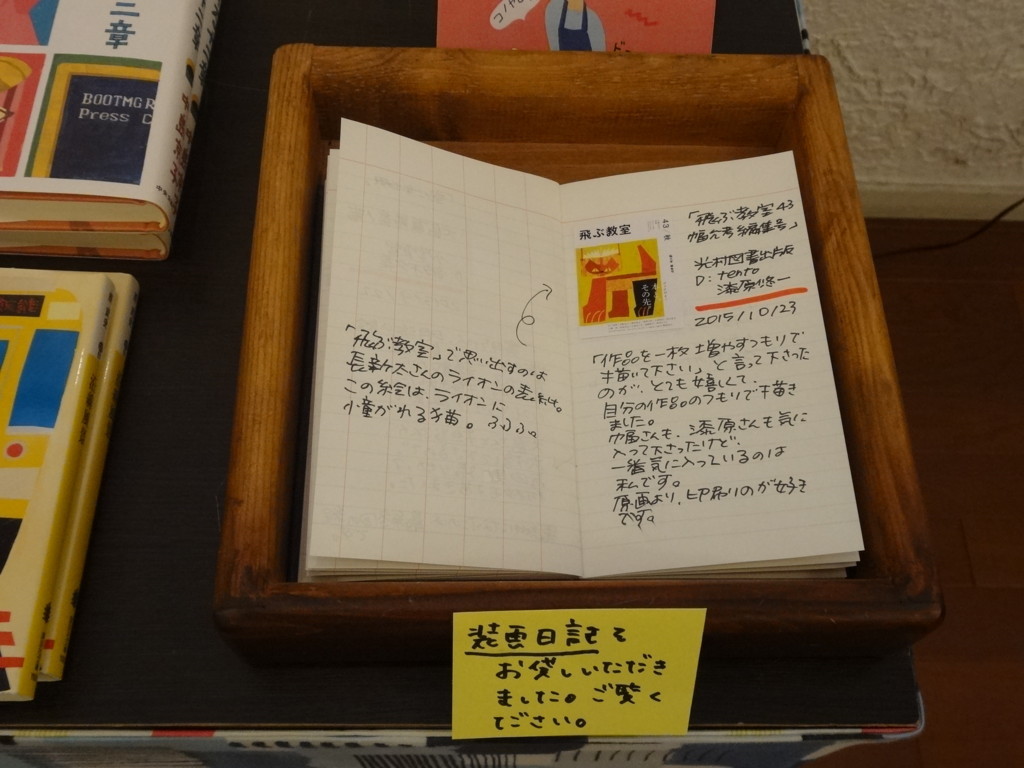 二章
BOOTMGR
Press C
コノヤロ
「飛ぶ教室」で思い出すのは
長新太さんのライオンの表紙。
この絵は、ライオンに
憧がれる猫。ふふふ。
飛ぶ教室
43
本と
その先
「飛ぶ教室43
幅允孝編集号」
光村図書出版
D: tento
漆原悠一
2015/10/23
「作品を一枚増やすつもりで
描いて下さい」と言って下さった
のが、とても嬉しくて、
自分の作品のつもりで描き
ました。
幅さんも、漆原さんも気に
入って下さったけど、
一番気に入っているのは
私です。
原画より、印刷のが好き
です。
装画日記を
お貸しいただき
ました。ご覧く
ださい。